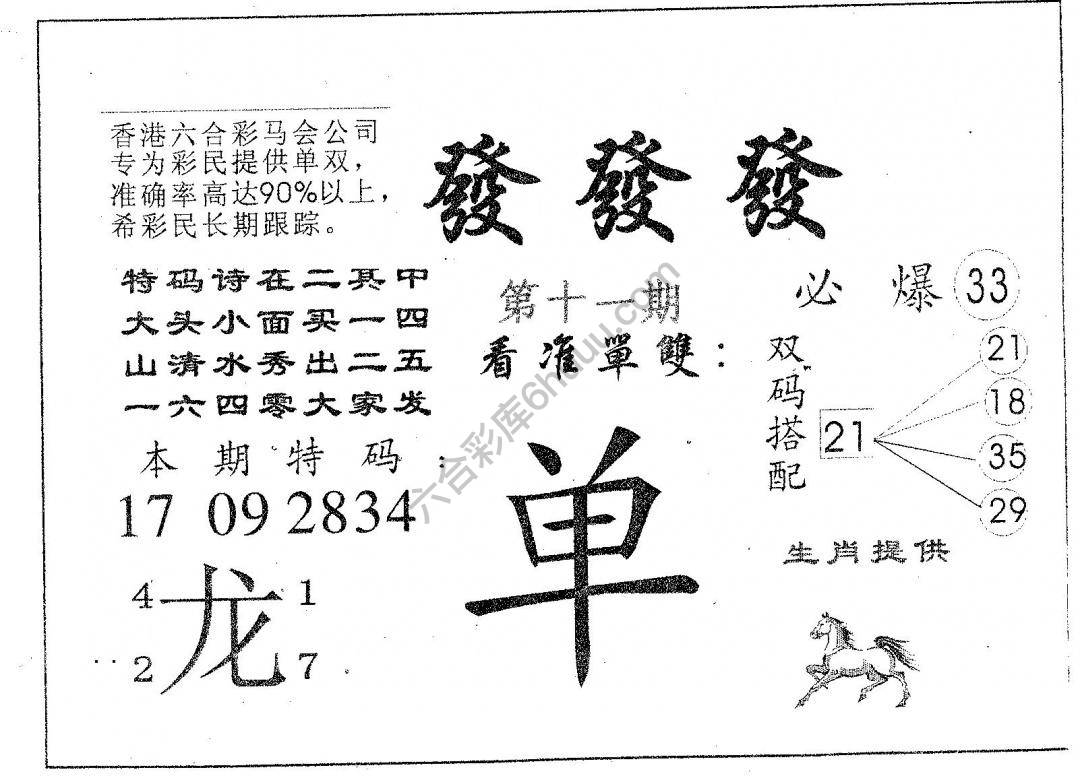 香港六合彩马会公司
专为彩民提供单双，
准确率高达90%以上，
希彩民长期跟踪。
發 發 發
特码诗在二其中
大头小面买一四
山清水秀出二五
一六四零大家发
第十一期
看准單雙：
必 爆 33
双码搭配
21
21
18
35
29
本期特码：
17 09 28 34
单
生肖提供
4 龙 1
2 7
六合彩库6huuu.com